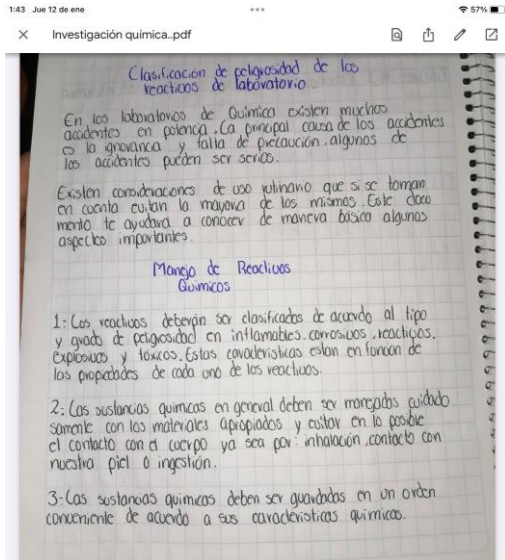 1:43 Jue 12 de ene
57%
Investigación química..pdf
Clasificacion de peligrosidad de los
reactivos de laboratorio
En los laboratorios de Quimica existen muchos
accidentes en potencia. La principal causa de los accidentes
es la ignorancia y falta de precaución. algunos de
los accidentes pueden ser serios.
Existen consideraciones de uso rutinario que si se toman
en cuenta evitan la mayoria de los mismos. Este docu
mento te ayudara a conocer de manera básica algunos
aspectos importantes.
Manejo de Reactivos
Quimicos
1: Los reactivos deberán ser clasificados de acuerdo al tipo
y grado de peligrosidad en inflamables. corrosivos, reactivos.
explosivos y tóxicos. Estas caracteristicas estan en funcion de
las propiedades de cada uno de los reactivos.
2: Las sustancias quimicas en general deben ser manejadas cuidado
samente con los materiales apropiados y evitar en lo posible
el contacto con el cuerpo ya sea por: inhalación, contacto con
nuestra piel o ingestión.
3: Las sustancias quimicas deben ser guardadas en un orden
conveniente de acuerdo a sus caracteristicas quimicas.